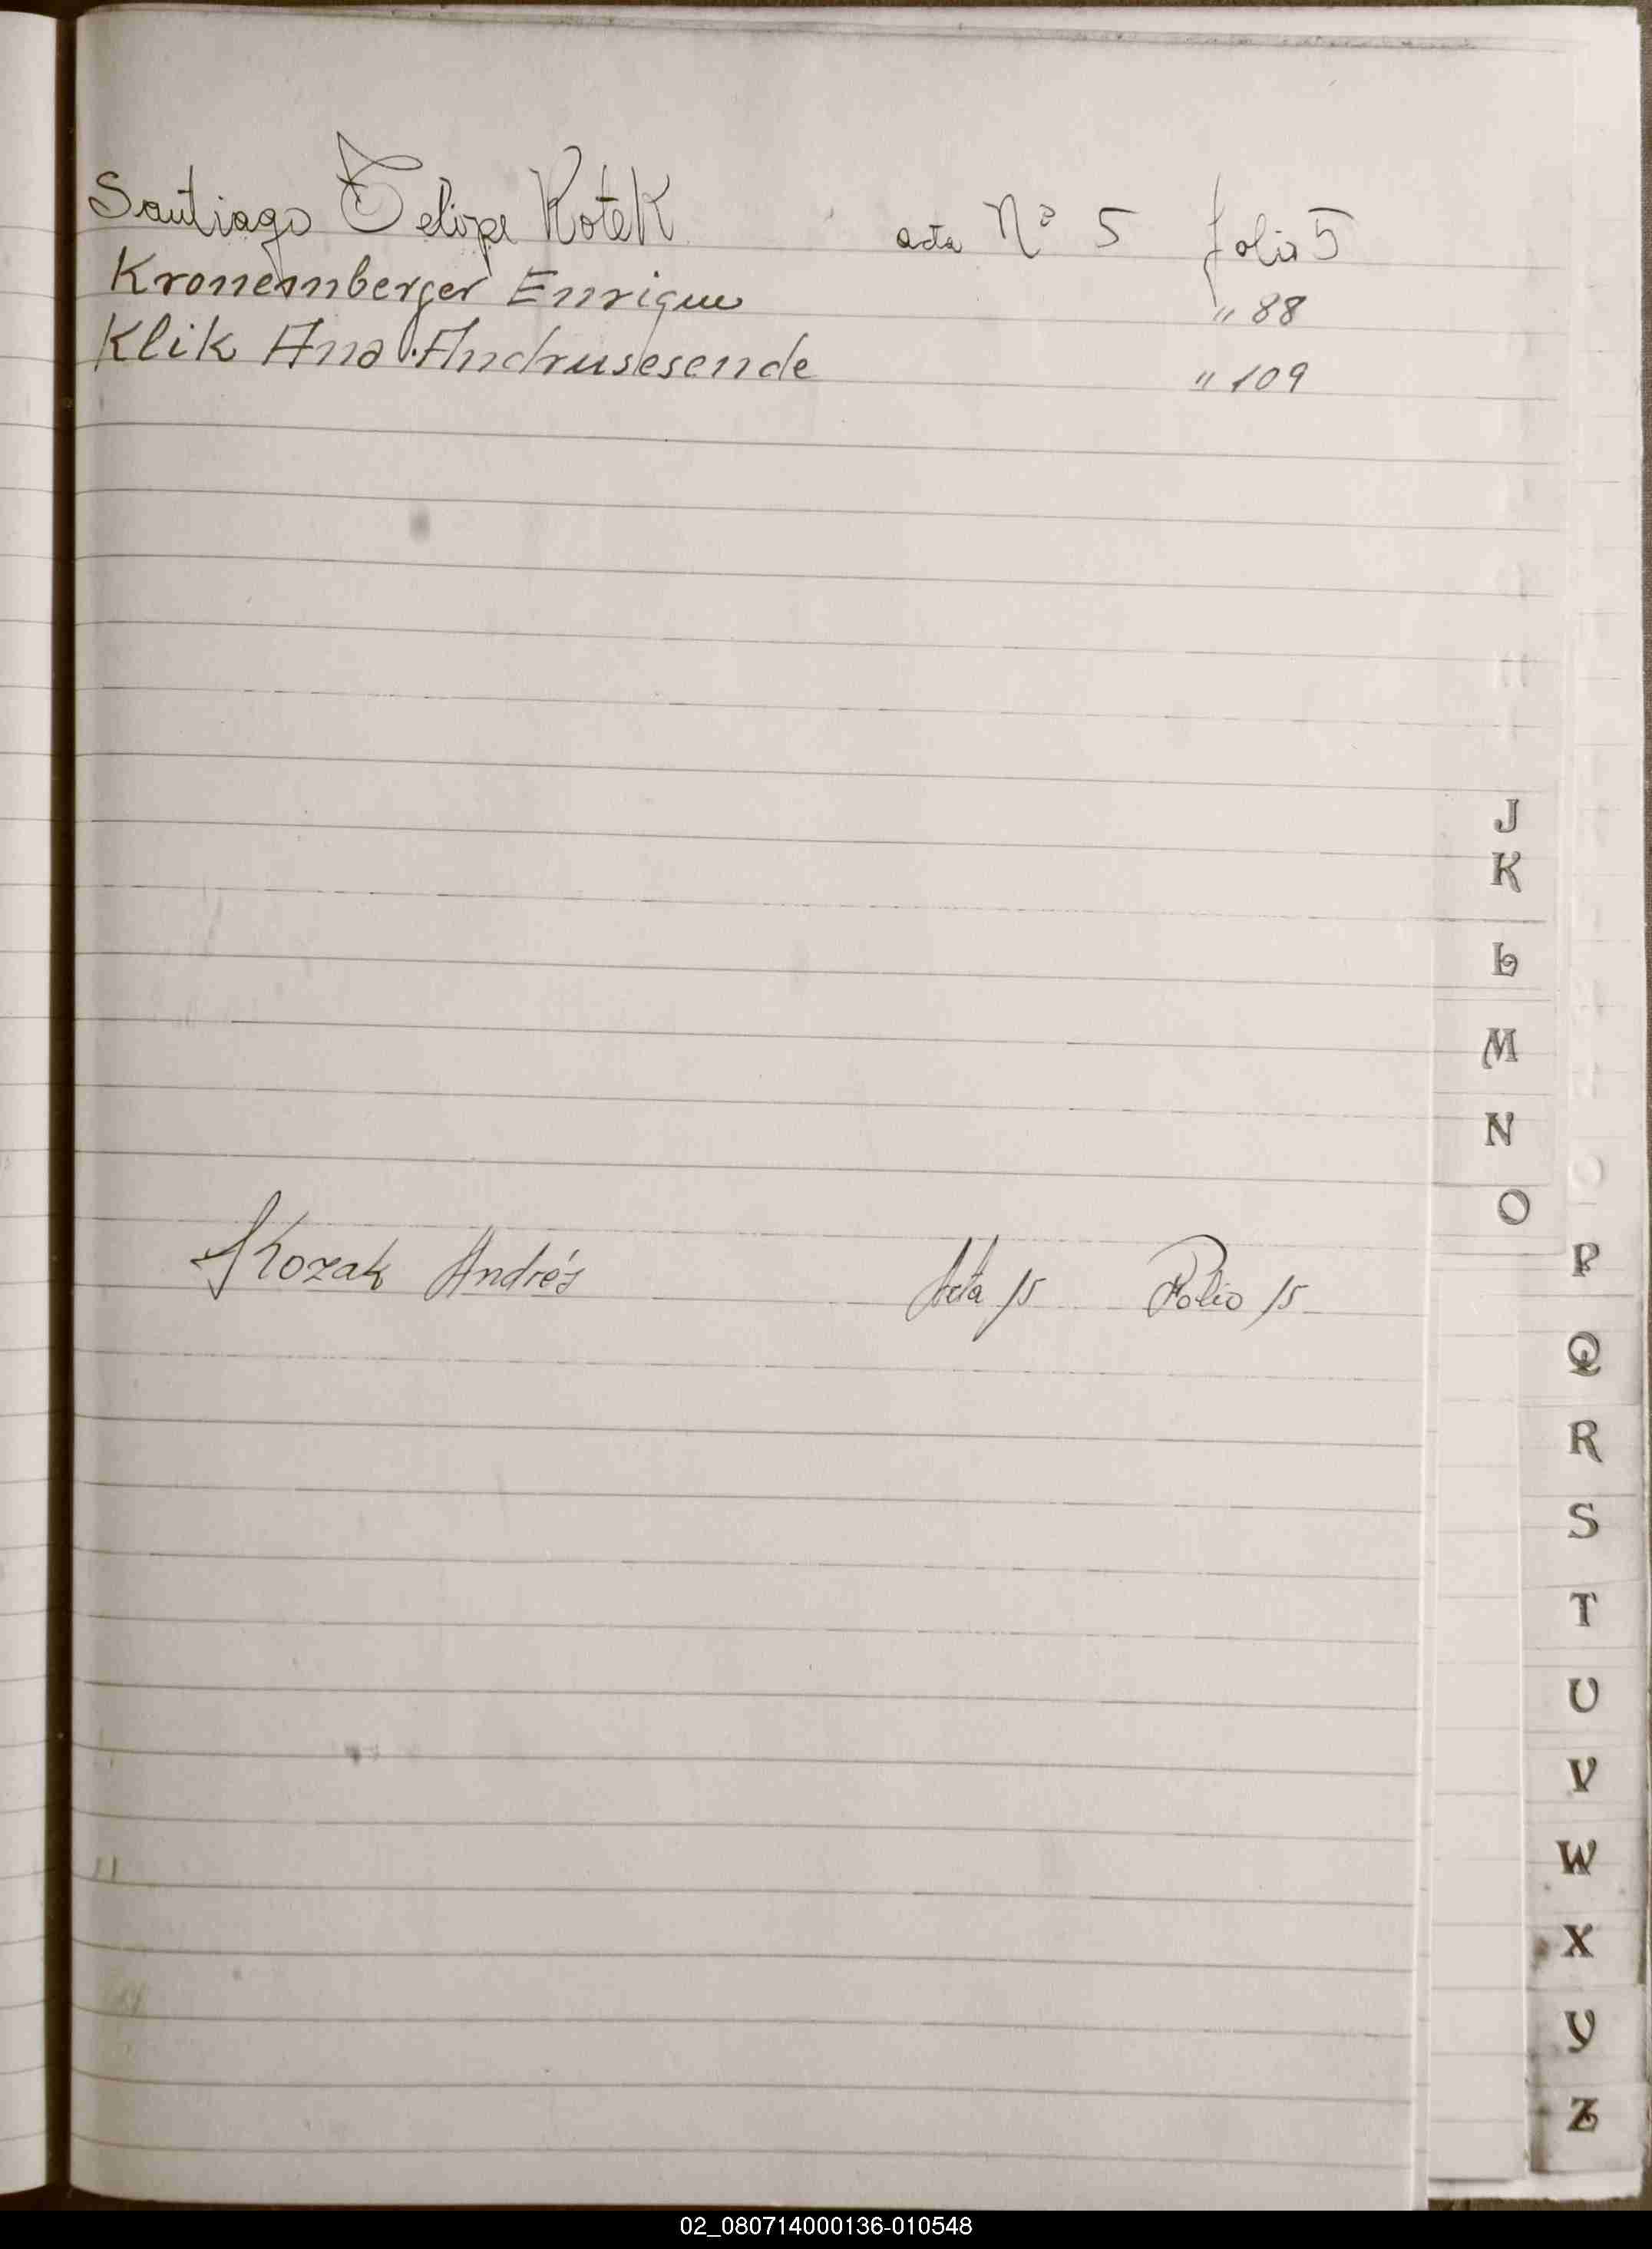 Santiago Felipe Kotek acta Nº 5 folio 5
Kronemberger Enrique " 88
Klik Ana Andrusesende " 109
J
K
L
M
N
O
Kozak Andrés Acta 15 Folio 15
P
Q
R
S
T
U
V
W
X
Y
Z
02_080714000136-010548